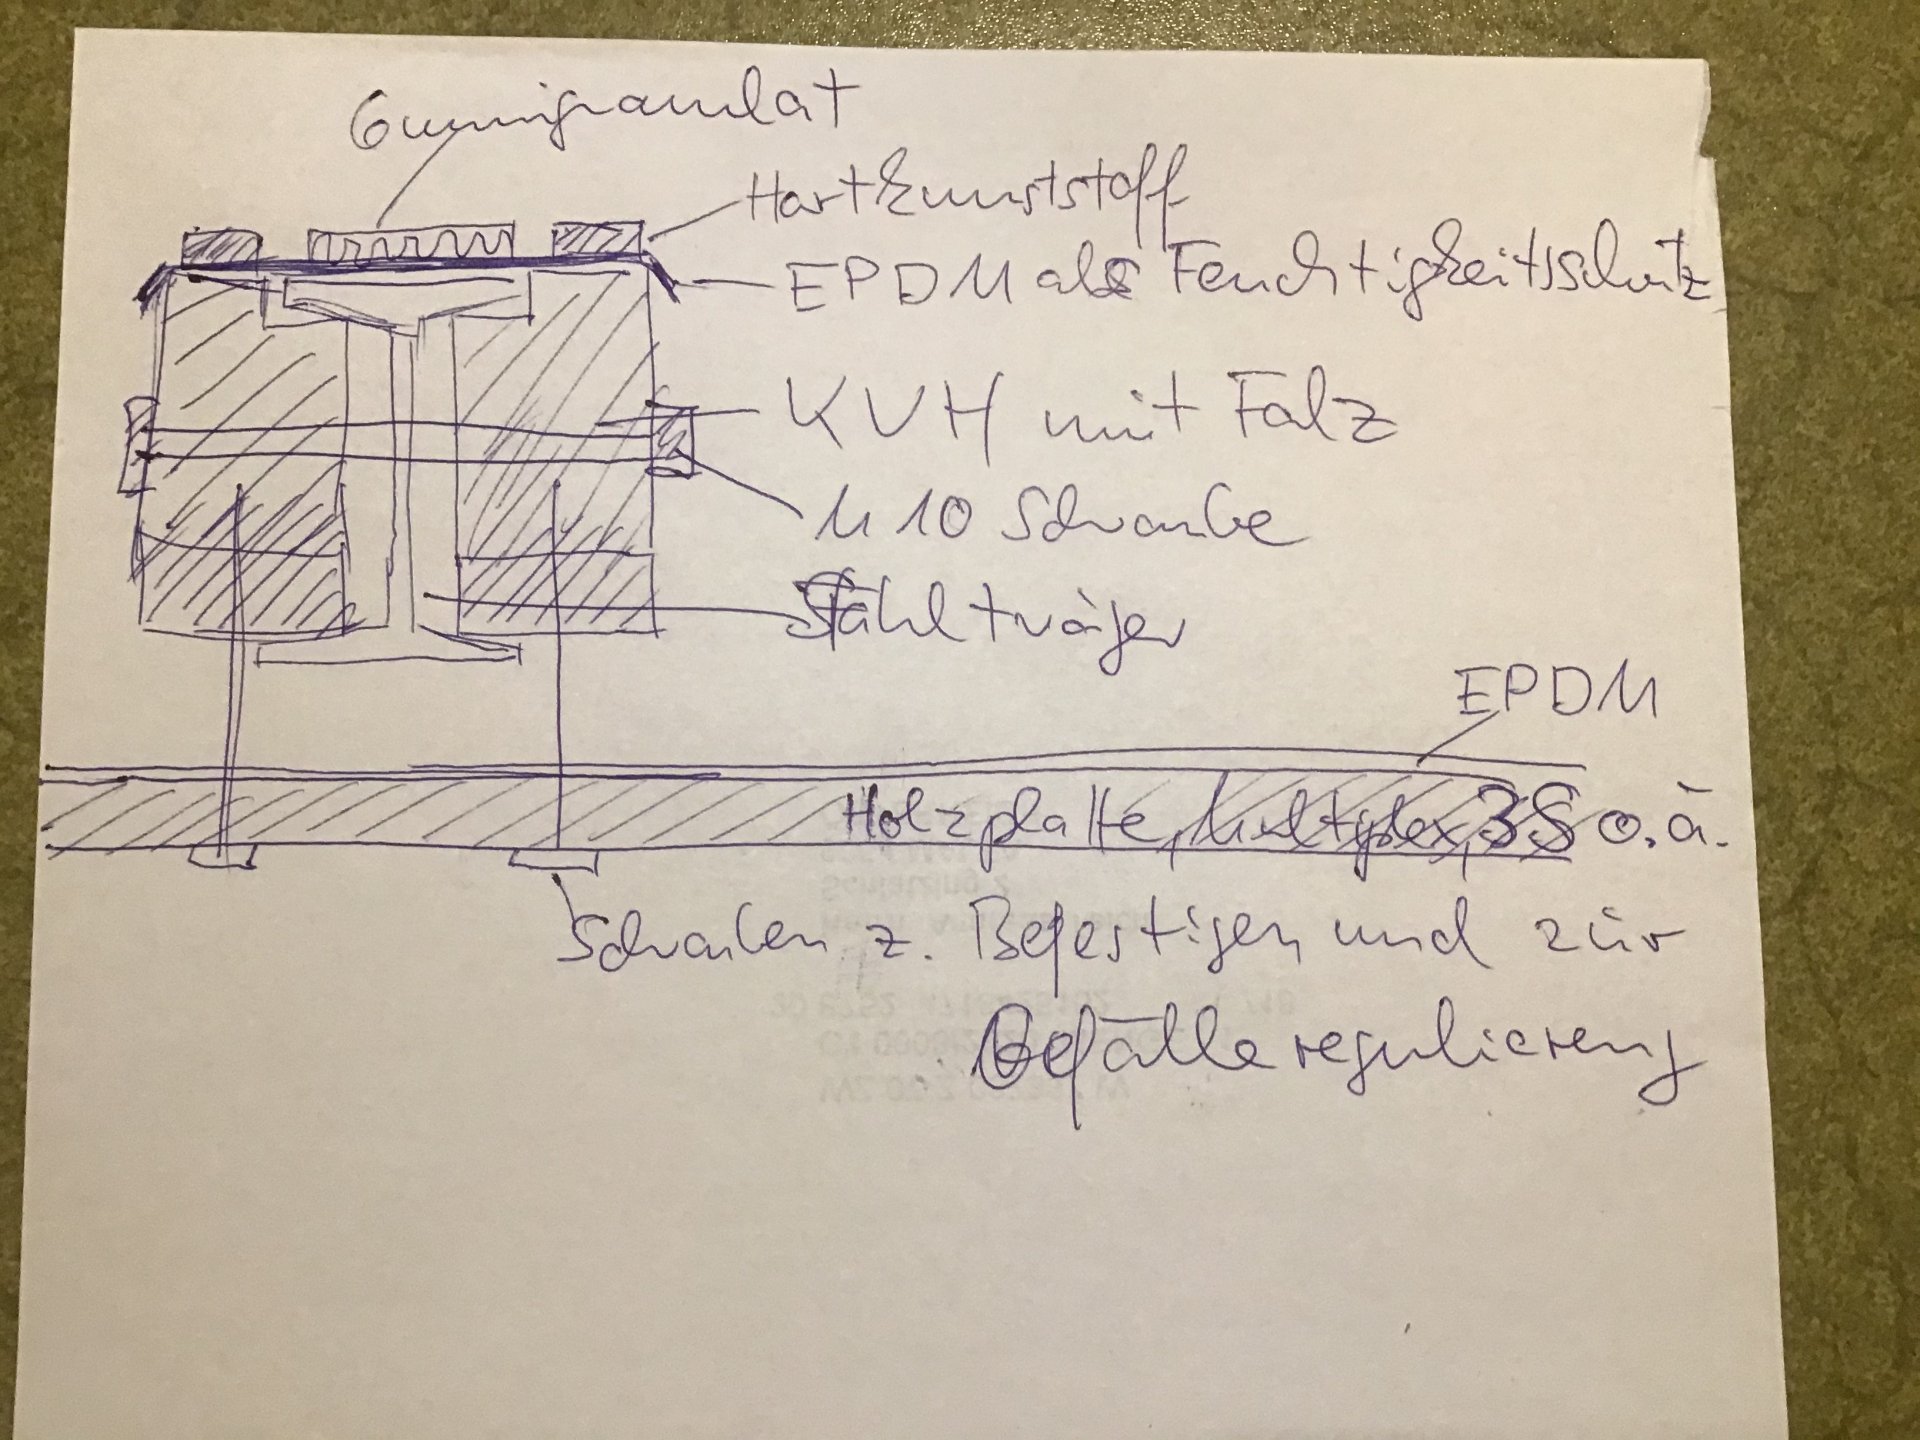 Gummigranulat
Hartkunststoff
EPDM als Feuchtigkeitsschutz
KVH mit Falz
M10 Schraube
Stahlträger
EPDM
Holzplatte, Multiplex, 3S o.ä.
Schrauben z. Befestigen und zur
Gefälleregulierung